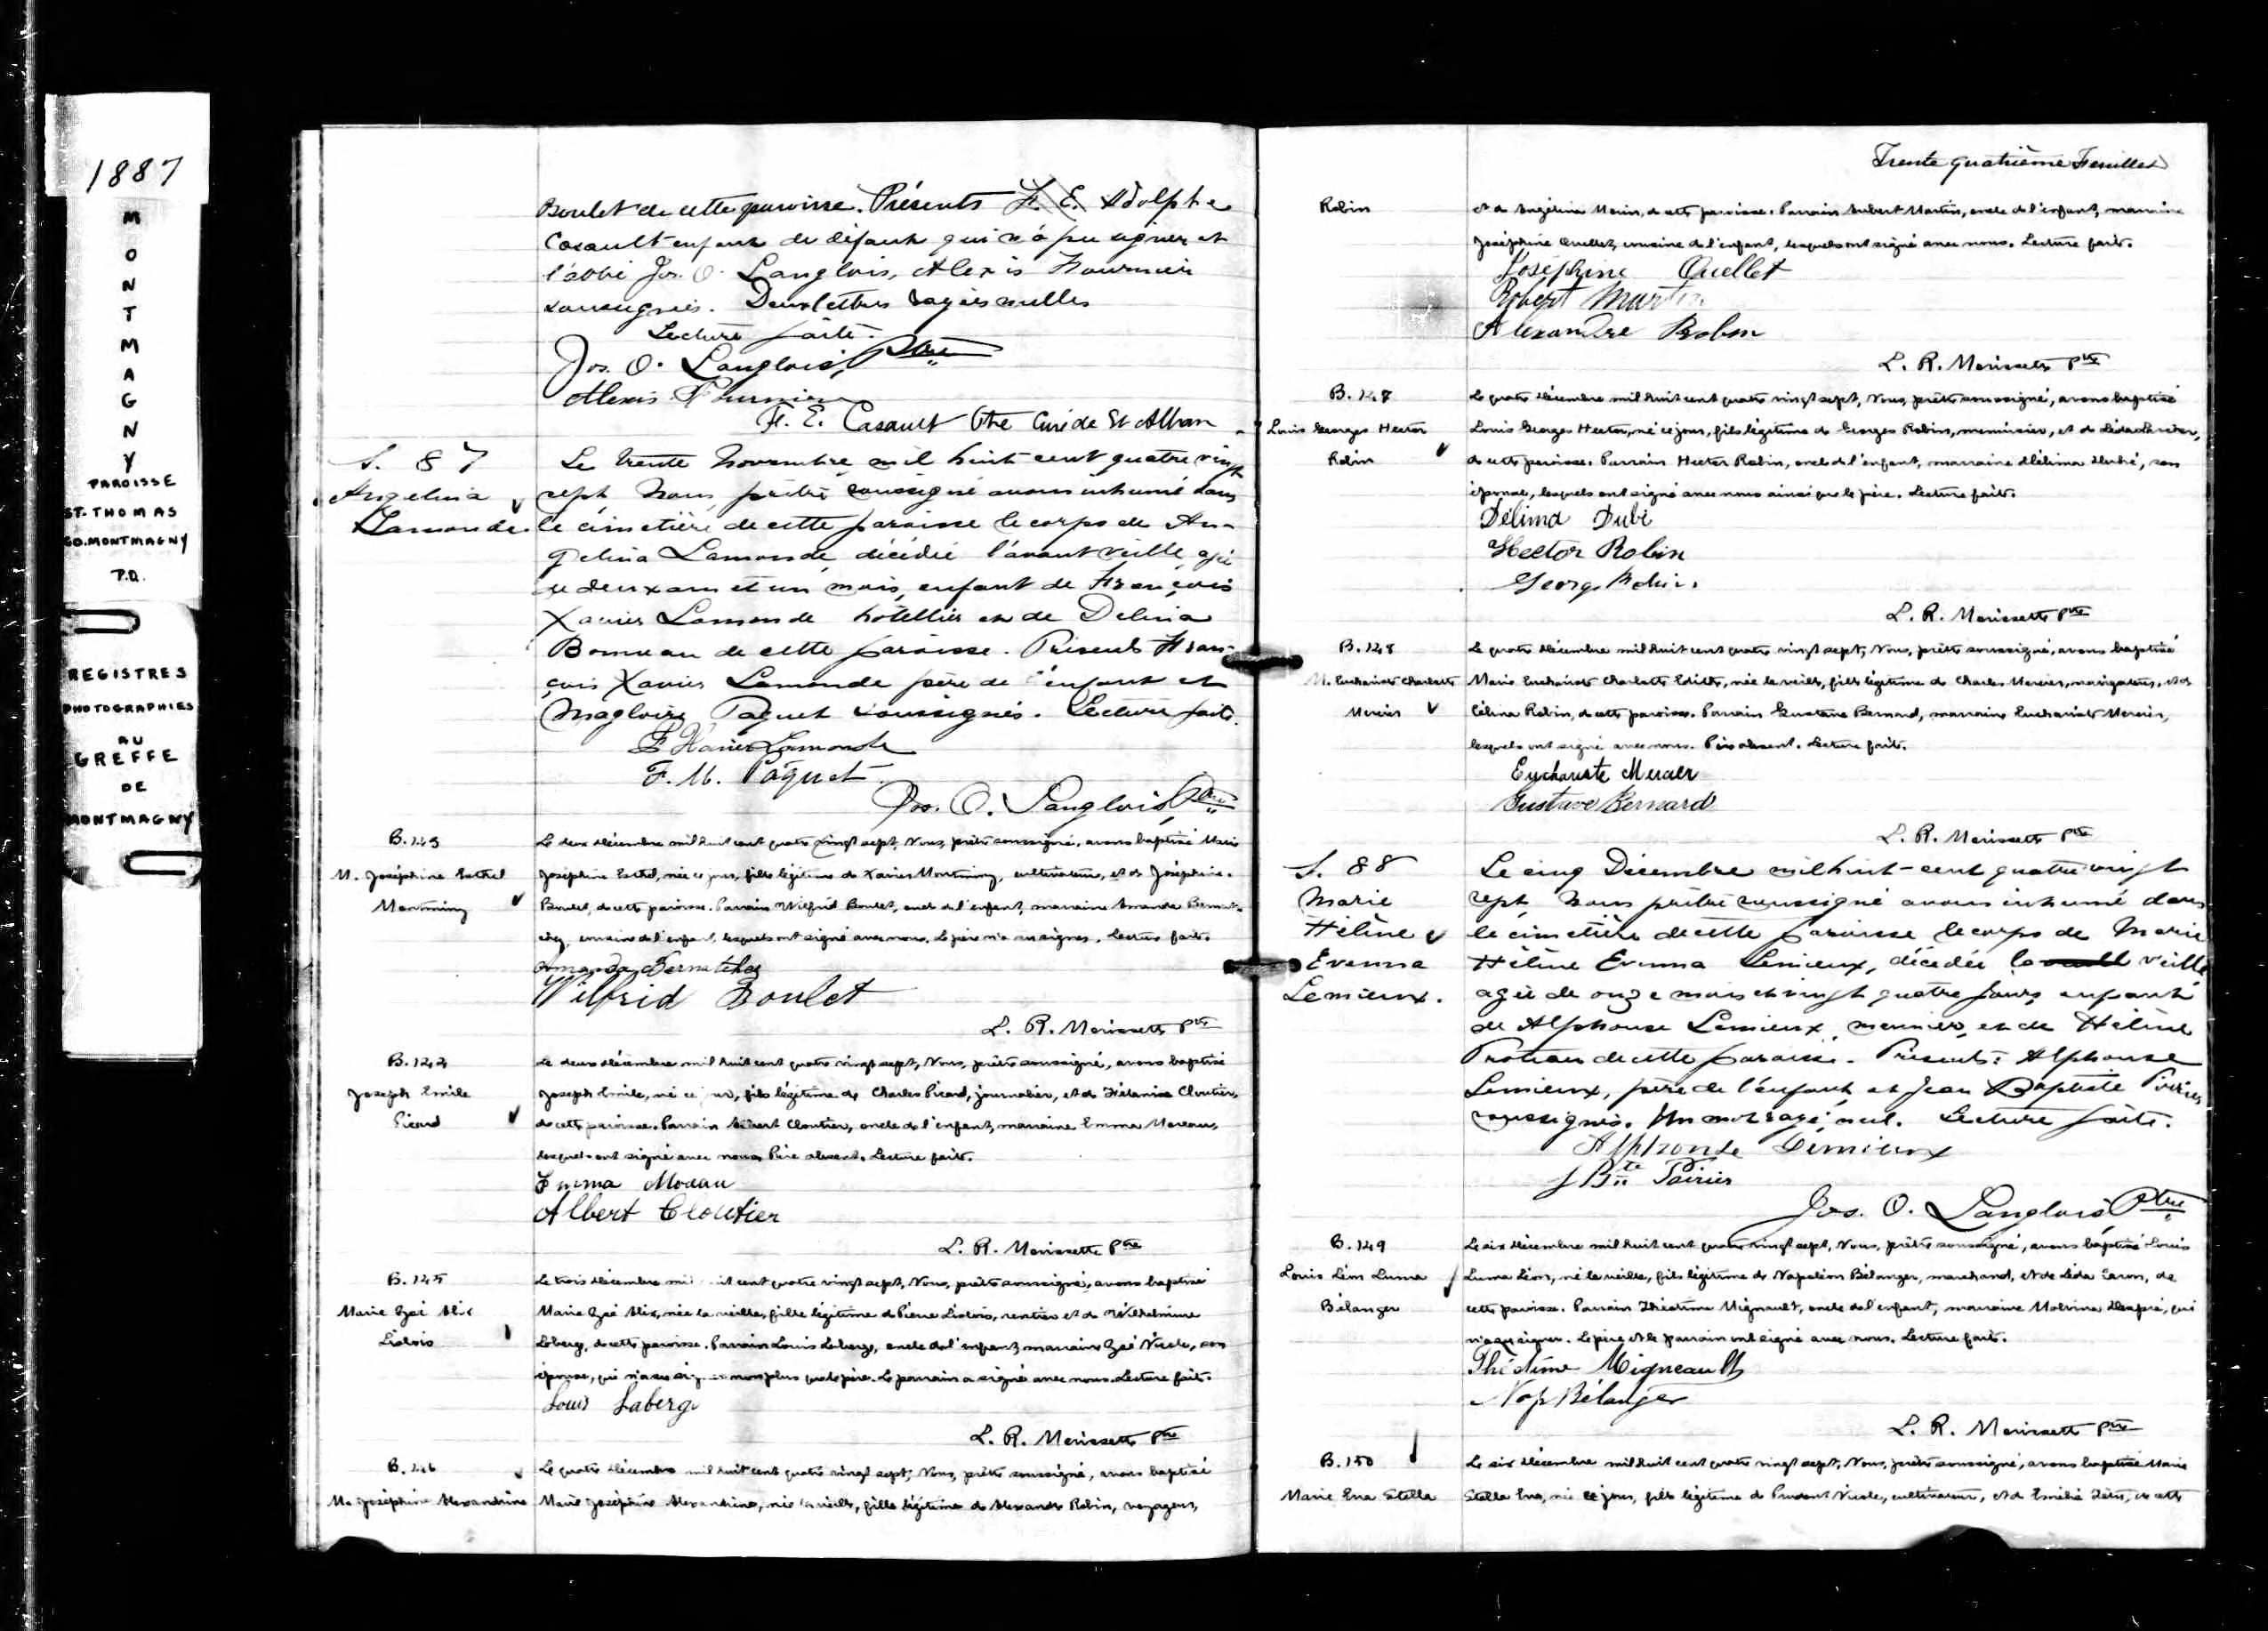 1887
MONTMAGNY
PAROISSE
ST. THOMAS
CO. MONTMAGNY
P.Q.
REGISTRES
PHOTOGRAPHIES
AU
GREFFE
DE
MONTMAGNY
Boulet de cette paroisse. Présents F. E. Adolphe
Casault enfant de défunt qui n'a pu signer et
l'abbé Jos. O. Langlois, Alexis Fournier
soussignés. Deux lettres rayées nulles
Lecture faite.
Jos. O. Langlois, Ptre
Alexis Fournier
F. E. Casault Ptre Curé de St Alban
S. 87
Angelina
Lamonde.
Le trente Novembre mil huit cent quatre vingt
sept Nous prêtre soussigné avons inhumé dans
le cimetière de cette paroisse le corps de An-
gelina Lamonde, décédée l'avant veille, agée
de deux ans et un mois, enfant de François
Xavier Lamonde hôtellier et de Delina
Bonneau de cette paroisse. Présents Fran-
çois Xavier Lamonde père de l'enfant et
Magloire Paquet soussignés. Lecture faite.
F Xavier Lamonde
F. M. Paquet
Jos. O. Langlois, Ptre
B. 143
M. Joséphine Esthel
Montminy
Le deux décembre mil huit cent quatre vingt sept, Nous, prêtre soussigné, avons baptisé Marie
Joséphine Esthel, née ce jour, fille légitime de Xavier Montminy, cultivateur, et de Joséphine
Boulet, de cette paroisse. Parrain Wilfrid Boulet, oncle de l'enfant, marraine Amanda Bernat-
chez, cousine de l'enfant, lesquels ont signé avec nous. Le père n'a su signer. Lecture faite.
Amanda Bernatchez
Wilfrid Boulet
L. R. Morissette Ptre
B. 144
Joseph Emile
Picard
Le deux décembre mil huit cent quatre vingt sept, Nous, prêtre soussigné, avons baptisé
Joseph Emile, né ce jour, fils légitime de Charles Picard, journalier, et de Cloutier,
de cette paroisse. Parrain Albert Cloutier, oncle de l'enfant, marraine Emma Moreau,
lesquels ont signé avec nous. Père absent. Lecture faite.
Emma Moreau
Albert Cloutier
L. R. Morissette Ptre
B. 145
Marie Zoé Alix
Lislois
Le trois décembre mil huit cent quatre vingt sept, Nous, prêtre soussigné, avons baptisé
Marie Zoé Alix, née la veille, fille légitime de Pierre Lislois, rentier et de Wilhelmine
Laberge, de cette paroisse. Parrain Louis Laberge, oncle de l'enfant, marraine Zoé Nicole, son
épouse, qui n'a su signer non plus que le père. Le parrain a signé avec nous. Lecture faite.
Louis Laberge
L. R. Morissette Ptre
B. 146
M. Joséphine Alexandrine
Le quatre décembre mil huit cent quatre vingt sept, Nous, prêtre soussigné, avons baptisé
Marie Joséphine Alexandrine, née la veille, fille légitime de Alexandre Robin, voyageur,
Trente quatrième Feuillet
Robin
et de Angélina Morin, de cette paroisse. Parrain Robert Martin, oncle de l'enfant, marraine
Joséphine Ouellet, cousine de l'enfant, lesquels ont signé avec nous. Lecture faite.
Joséphine Ouellet
Robert Martin
Alexandre Robin
L. R. Morissette Ptre
B. 147
Louis Georges Hector
Robin
Le quatre décembre mil huit cent quatre vingt sept, Nous, prêtre soussigné, avons baptisé
Louis Georges Hector, né ce jour, fils légitime de Georges Robin, menuisier, et de Léda
de cette paroisse. Parrain Hector Robin, oncle de l'enfant, marraine Délima Dubé, son
épouse, lesquels ont signé avec nous ainsi que le père. Lecture faite.
Délima Dubé
Hector Robin
George Robin.
L. R. Morissette Ptre
B. 148
M. Euchariste Charlotte
Mercier
Le quatre décembre mil huit cent quatre vingt sept, Nous, prêtre soussigné, avons baptisé
Marie Euchariste Charlotte Edith, née la veille, fille légitime de Charles Mercier, navigateur, et de
Célina Robin, de cette paroisse. Parrain Gustave Bernard, marraine Euchariste Mercier,
lesquels ont signé avec nous. Père absent. Lecture faite.
Euchariste Mercier
Gustave Bernard
L. R. Morissette Ptre
S. 88
Marie
Hélène
Evenna
Lemieux.
Le cinq Décembre mil huit-cent quatre vingt
sept Nous prêtre soussigné avons inhumé dans
le cimetière de cette paroisse le corps de Marie
Hélène Evenna Lemieux, décédée la veille
agée de onze mois et vingt quatre jours enfant
de Alphonse Lemieux, meunier, et de Hélène
Proteau de cette paroisse. Présents: Alphonse
Lemieux, père de l'enfant et Jean Baptiste Poirier
soussignés. Un mot rayé, nul. Lecture faite.
Alphonse Lemieux
J Bte Poirier
Jos. O. Langlois Ptre
B. 149
Louis Léon Luma
Bélanger
Le six décembre mil huit cent quatre vingt sept, Nous, prêtre soussigné, avons baptisé Louis
Luma Léon, né la veille, fils légitime de Napoléon Bélanger, marchand, et de Léda Caron, de
cette paroisse. Parrain Théotime Mignault, oncle de l'enfant, marraine Malvina qui
n'a su signer. Le père et le parrain ont signé avec nous. Lecture faite.
Théotime Migneault
Nap Bélanger
L. R. Morissette Ptre
B. 150
Marie Eva Stella
Le six décembre mil huit cent quatre vingt sept, Nous, prêtre soussigné, avons baptisé Marie
Stella Eva, née ce jour, fille légitime de Prudent Nicole, cultivateur, et de Emélie de cette